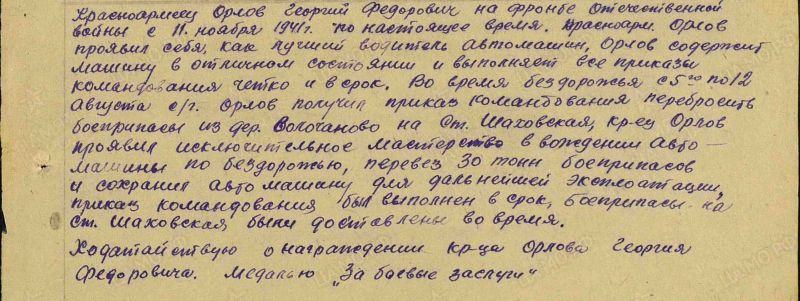 Красноармеец Орлов Георгий Федорович на фронте Отечественной
войны с 11. ноября 1941г. по настоящее время. Красноарм. Орлов
проявил себя, как лучший водитель автомашин, Орлов содержит
машину в отличном состоянии и выполняет все приказы
командования четко и в срок. Во время бездорожья с 5го по 12
августа с/г. Орлов получил приказ командования перебросить
боеприпасы из дер. Волочаново на Ст. Шаховская, кр-ец Орлов
проявил исключительное мастерство в вождении авто-
машины по бездорожью, перевез 30 тонн боеприпасов
и сохранил автомашину для дальнейшей эксплоатации,
приказ командования был выполнен в срок, боеприпасы на
ст. Шаховская были доставлены во время.
Ходатайствую о награждении кр-ца Орлова Георгия
Федоровича. Медалью „За боевые заслуги"